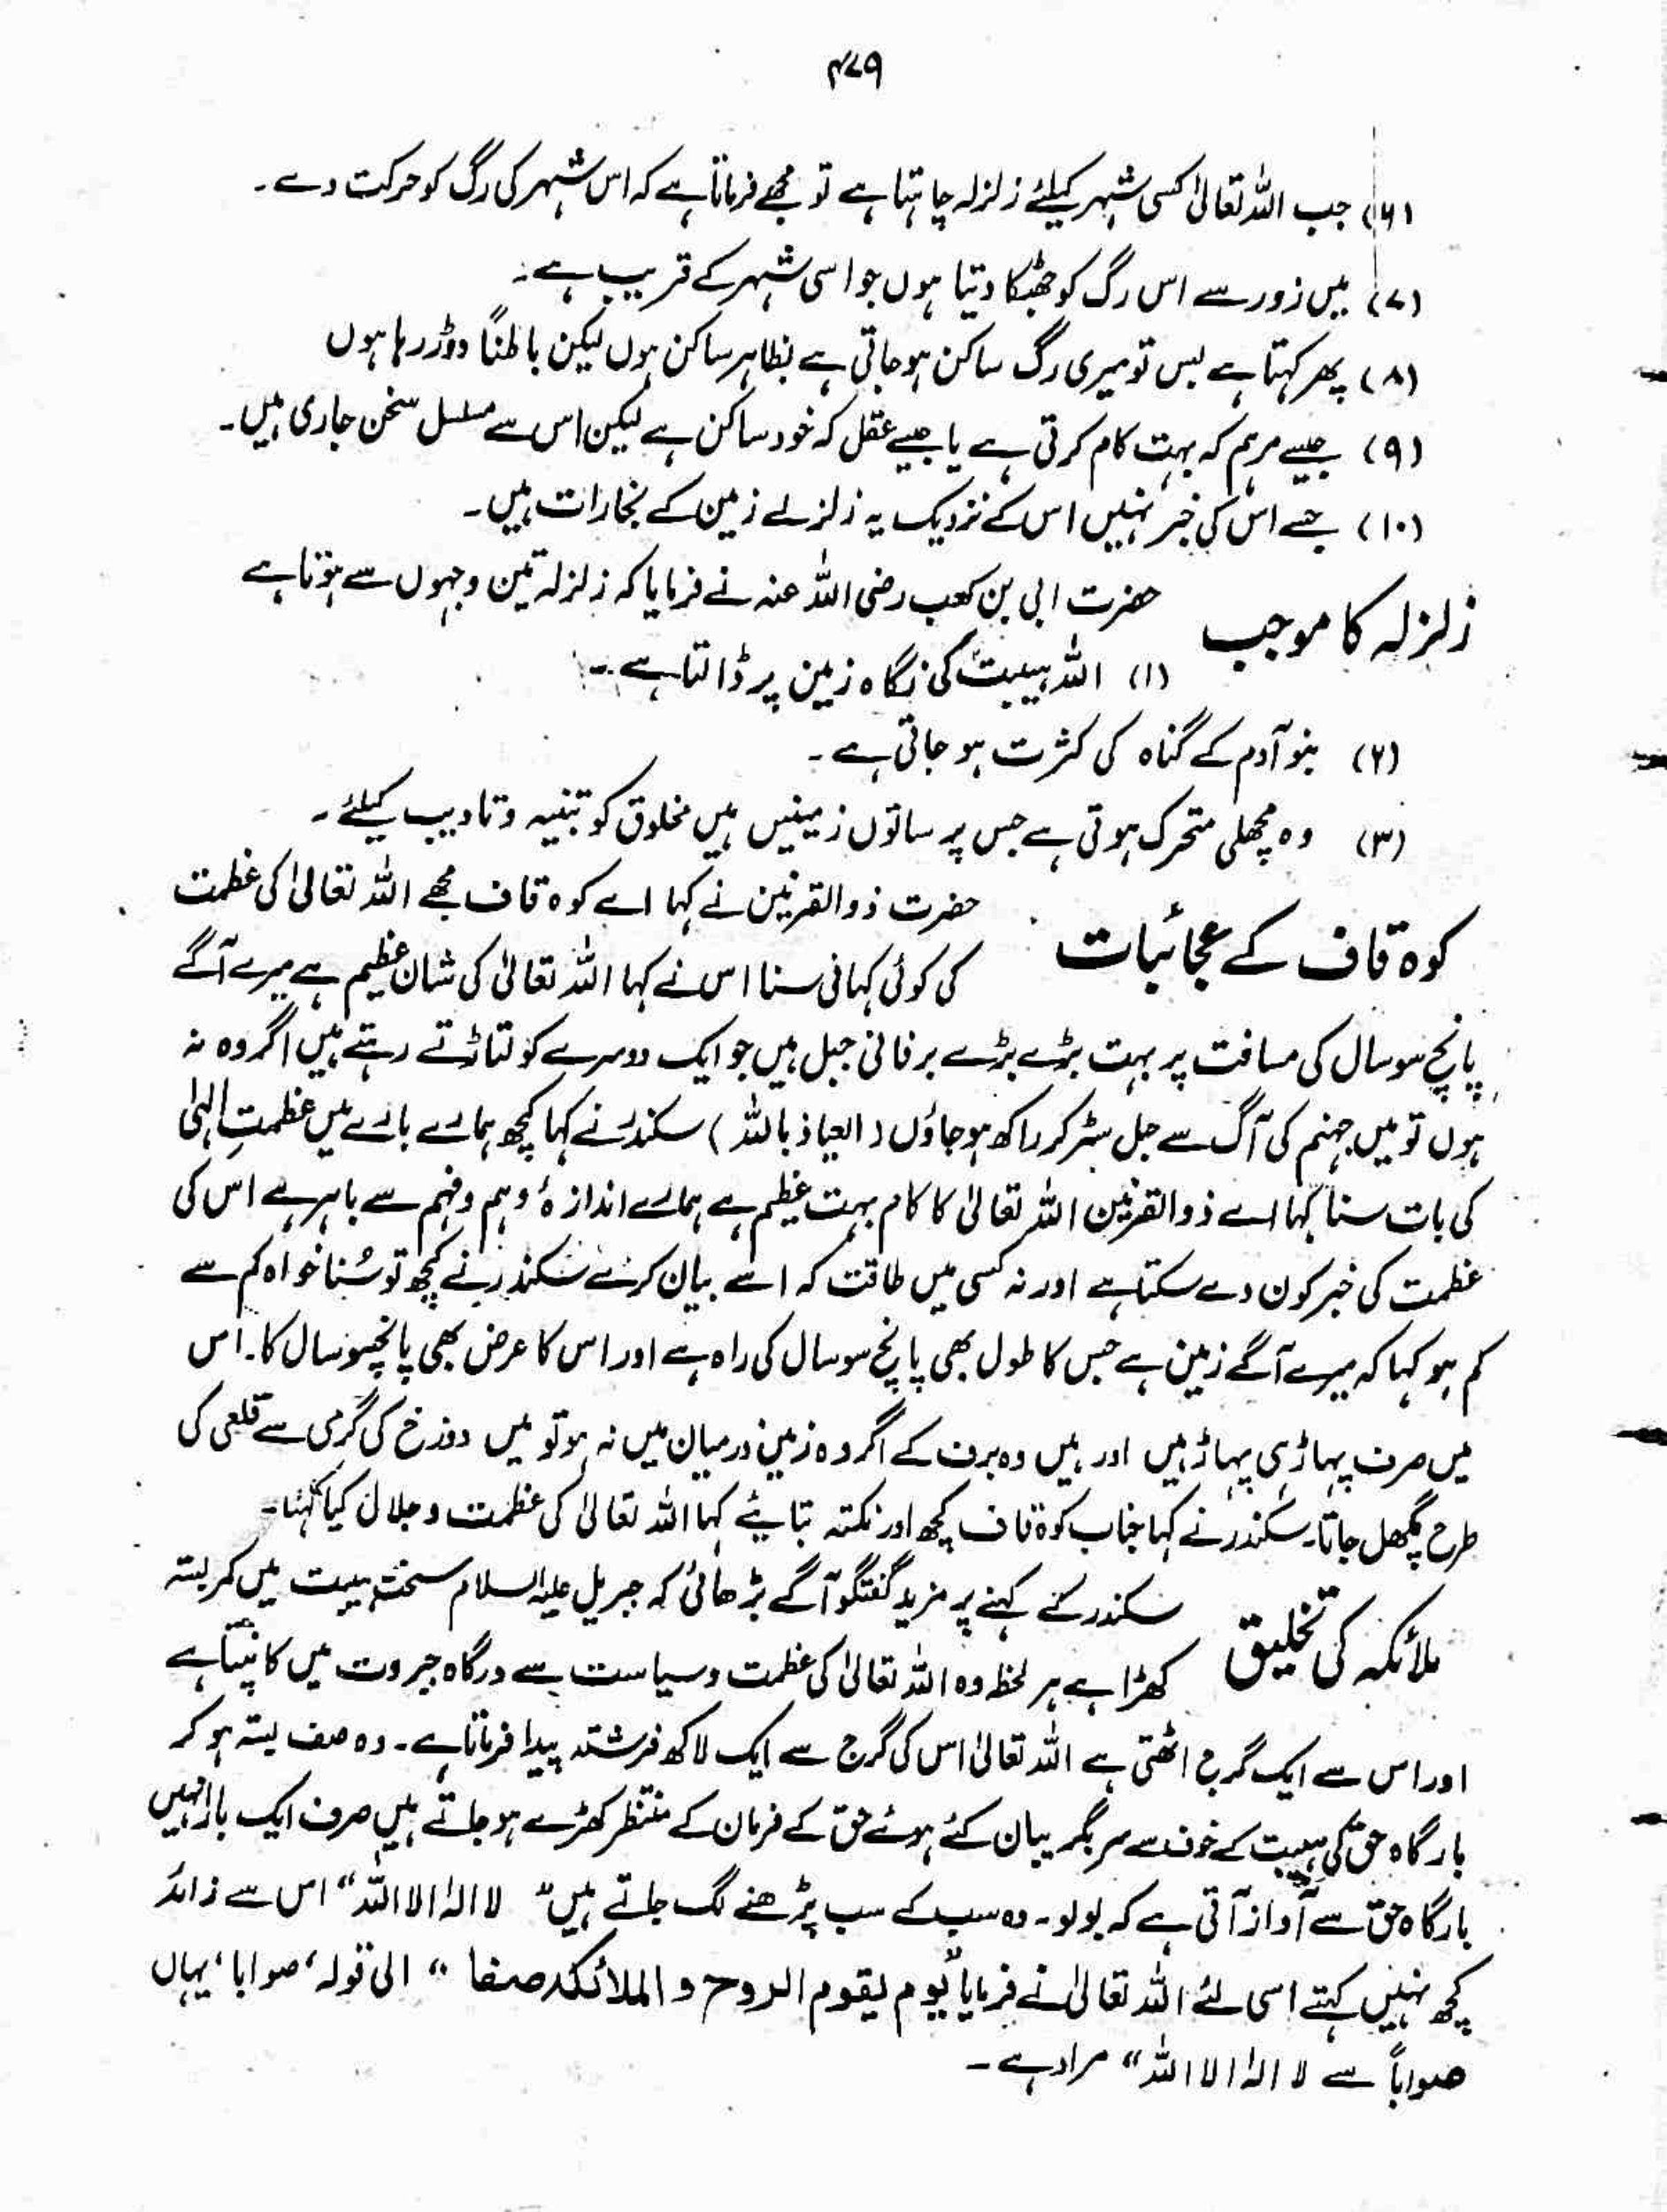 ۴۷۹
(۶) جب اللہ تعالیٰ کسی شہر کیلئے زلزلہ چاہتا ہے تو مجھے فرماتا ہے کہ اس شہر کی رگ کو حرکت دے۔
(۷) میں زور سے اس رگ کو جھٹکا دیتا ہوں جو اسی شہر کے قریب ہے۔
(۸) پھر کہتا ہے بس تو میری رگ ساکن ہو جاتی ہے بظاہر ساکن ہوں لیکن باطناً دوڑ رہا ہوں
(۹) جیسے مرہم کہ بہت کام کرتی ہے یا جیسے عقل کہ خود ساکن ہے لیکن اس سے مسلسل سخن جاری ہیں۔
(۱۰) جسے اس کی خبر نہیں اس کے نزدیک یہ زلزلے زمین کے بخارات ہیں۔
زلزلہ کا موجب
حضرت ابی بن کعب رضی اللہ عنہ نے فرمایا کہ زلزلہ تین وجہوں سے ہوتا ہے
(۱) اللہ ہیبت کی نگاہ زمین پر ڈالتا ہے۔
(۲) بنو آدم کے گناہ کی کثرت ہو جاتی ہے۔
(۳) وہ مچھلی متحرک ہوتی ہے جس پر ساتوں زمینیں ہیں مخلوق کو تنبیہ و تادیب کیلئے۔
کوہ قاف کے عجائبات
حضرت ذوالقرنین نے کہا اے کوہ قاف مجھے اللہ تعالیٰ کی عظمت
کی کوئی کہانی سنا اس نے کہا اللہ تعالیٰ کی شان عظیم ہے میرے آگے
پانچ سو سال کی مسافت پر بہت بڑے بڑے برفانی جبل ہیں جو ایک دوسرے کو لتاڑتے رہتے ہیں اگر وہ نہ
ہوں تو میں جہنم کی آگ سے جل سڑ کر راکھ ہو جاؤں (العیاذ باللہ) سکندر نے کہا کچھ ہمارے بارے میں عظمتِ الٰہی
کی بات سنا کہا اے ذوالقرنین اللہ تعالیٰ کا کام بہت عظیم ہے ہمارے اندازۂ وہم و فہم سے باہر ہے اس کی
عظمت کی خبر کون دے سکتا ہے اور نہ کسی میں طاقت کہ اسے بیان کرے سکندر نے کچھ تو سُنا خواہ کم سے
کم ہو کہا کہ میرے آگے زمین ہے جس کا طول بھی پانچ سو سال کی راہ ہے اور اس کا عرض بھی پانچسو سال کا۔ اس
میں صرف پہاڑ ہی پہاڑ ہیں اور ہیں وہ برف کے اگر وہ زمین درمیان میں نہ ہو تو میں دوزخ کی گرمی سے قلعی کی
طرح پگھل جاتا۔ سکندر نے کہا جناب کوہ قاف کچھ اور نکتہ بتایئے کہا اللہ تعالیٰ کی عظمت و جلال کیا کہنا۔
ملائکہ کی تخلیق
سکندر کے کہنے پر مزید گفتگو آگے بڑھائی کہ جبریل علیہ السلام سخت ہیبت میں کمربستہ
کھڑا ہے ہر لحظہ وہ اللہ تعالیٰ کی عظمت و سیاست سے درگاہ جبروت میں کانپتا ہے
اور اس سے ایک گرج اٹھتی ہے اللہ تعالیٰ اس کی گرج سے ایک لاکھ فرشتہ پیدا فرماتا ہے۔ وہ صف بستہ ہو کر
بارگاہ حق کی ہیبت کے خوف سے سر بگریبان کئے ہوئے حق کے فرمان کے منتظر کھڑے ہو جاتے ہیں صرف ایک بار انہیں
بارگاہ حق سے آواز آتی ہے کہ بولو۔ وہ سب کے سب پڑھنے لگ جاتے ہیں "لا الٰہ الا اللہ" اس سے زائد
کچھ نہیں کہتے اسی لئے اللہ تعالیٰ نے فرمایا "یوم یقوم الروح و الملائکہ صفا" الی قولہ 'صوابا' یہاں
صواباً سے لا الٰہ الا اللہ" مراد ہے۔